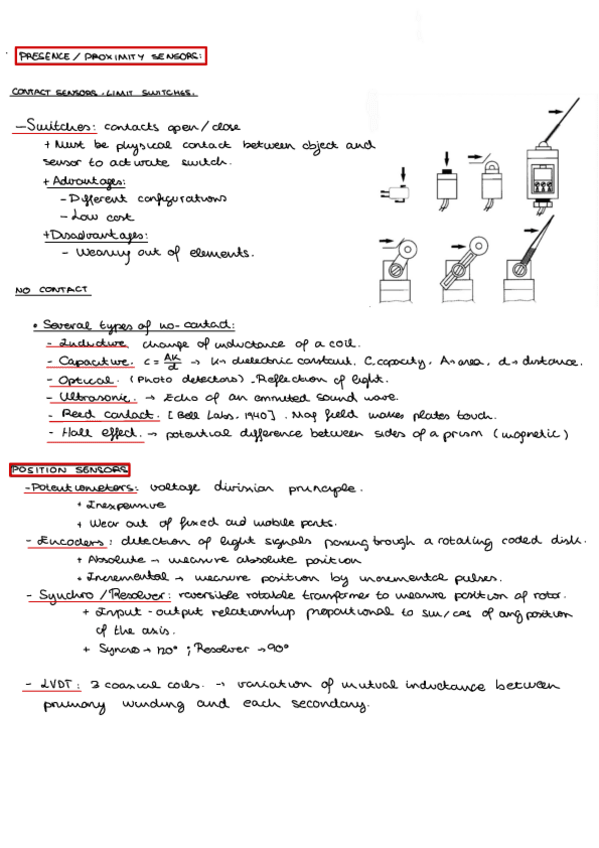 PRESENCE / PROXIMITY SENSORS:
CONTACT SENSORS. LIMIT SWITCHES.
- Switches: contacts open / close
+ Must be physical contact between object and
sensor to activate switch.
+ Advantages:
- Different configurations
- Low cost
+ Disadvantages:
- Wearing out of elements.
NO CONTACT
• Several types of no-contact:
- Inductive. change of inductance of a coil.
- Capacitive. C = AK/d → K= dielectric constant, C=capacity, A=area, d=distance.
- Optical. (Photo detectors). Reflection of light.
- Ultrasonic. → Echo of an emmuted sound wave.
- Reed contact. [Bell Labs, 1940]. Mag field makes plates touch.
- Hall effect. → potential difference between sides of a prism (magnetic)
POSITION SENSORS
- Potentiometers: voltage division principle.
+ Inexpensive
+ Wear out of fixed and mobile parts.
- Encoders: detection of light signals passing trough a rotating coded disk.
+ Absolute → measure absolute position
+ Incremental → measure position by incremental pulses.
- Synchro / Resolver: reversible rotable transformer to measure position of rotor.
+ Input - output relationship proportional to sin/cos of ang position
of the axis.
+ Syncro → 120° ; Resolver → 90°
- LVDT: 3 coaxial coils. → variation of mutual inductance between
primary winding and each secondary.